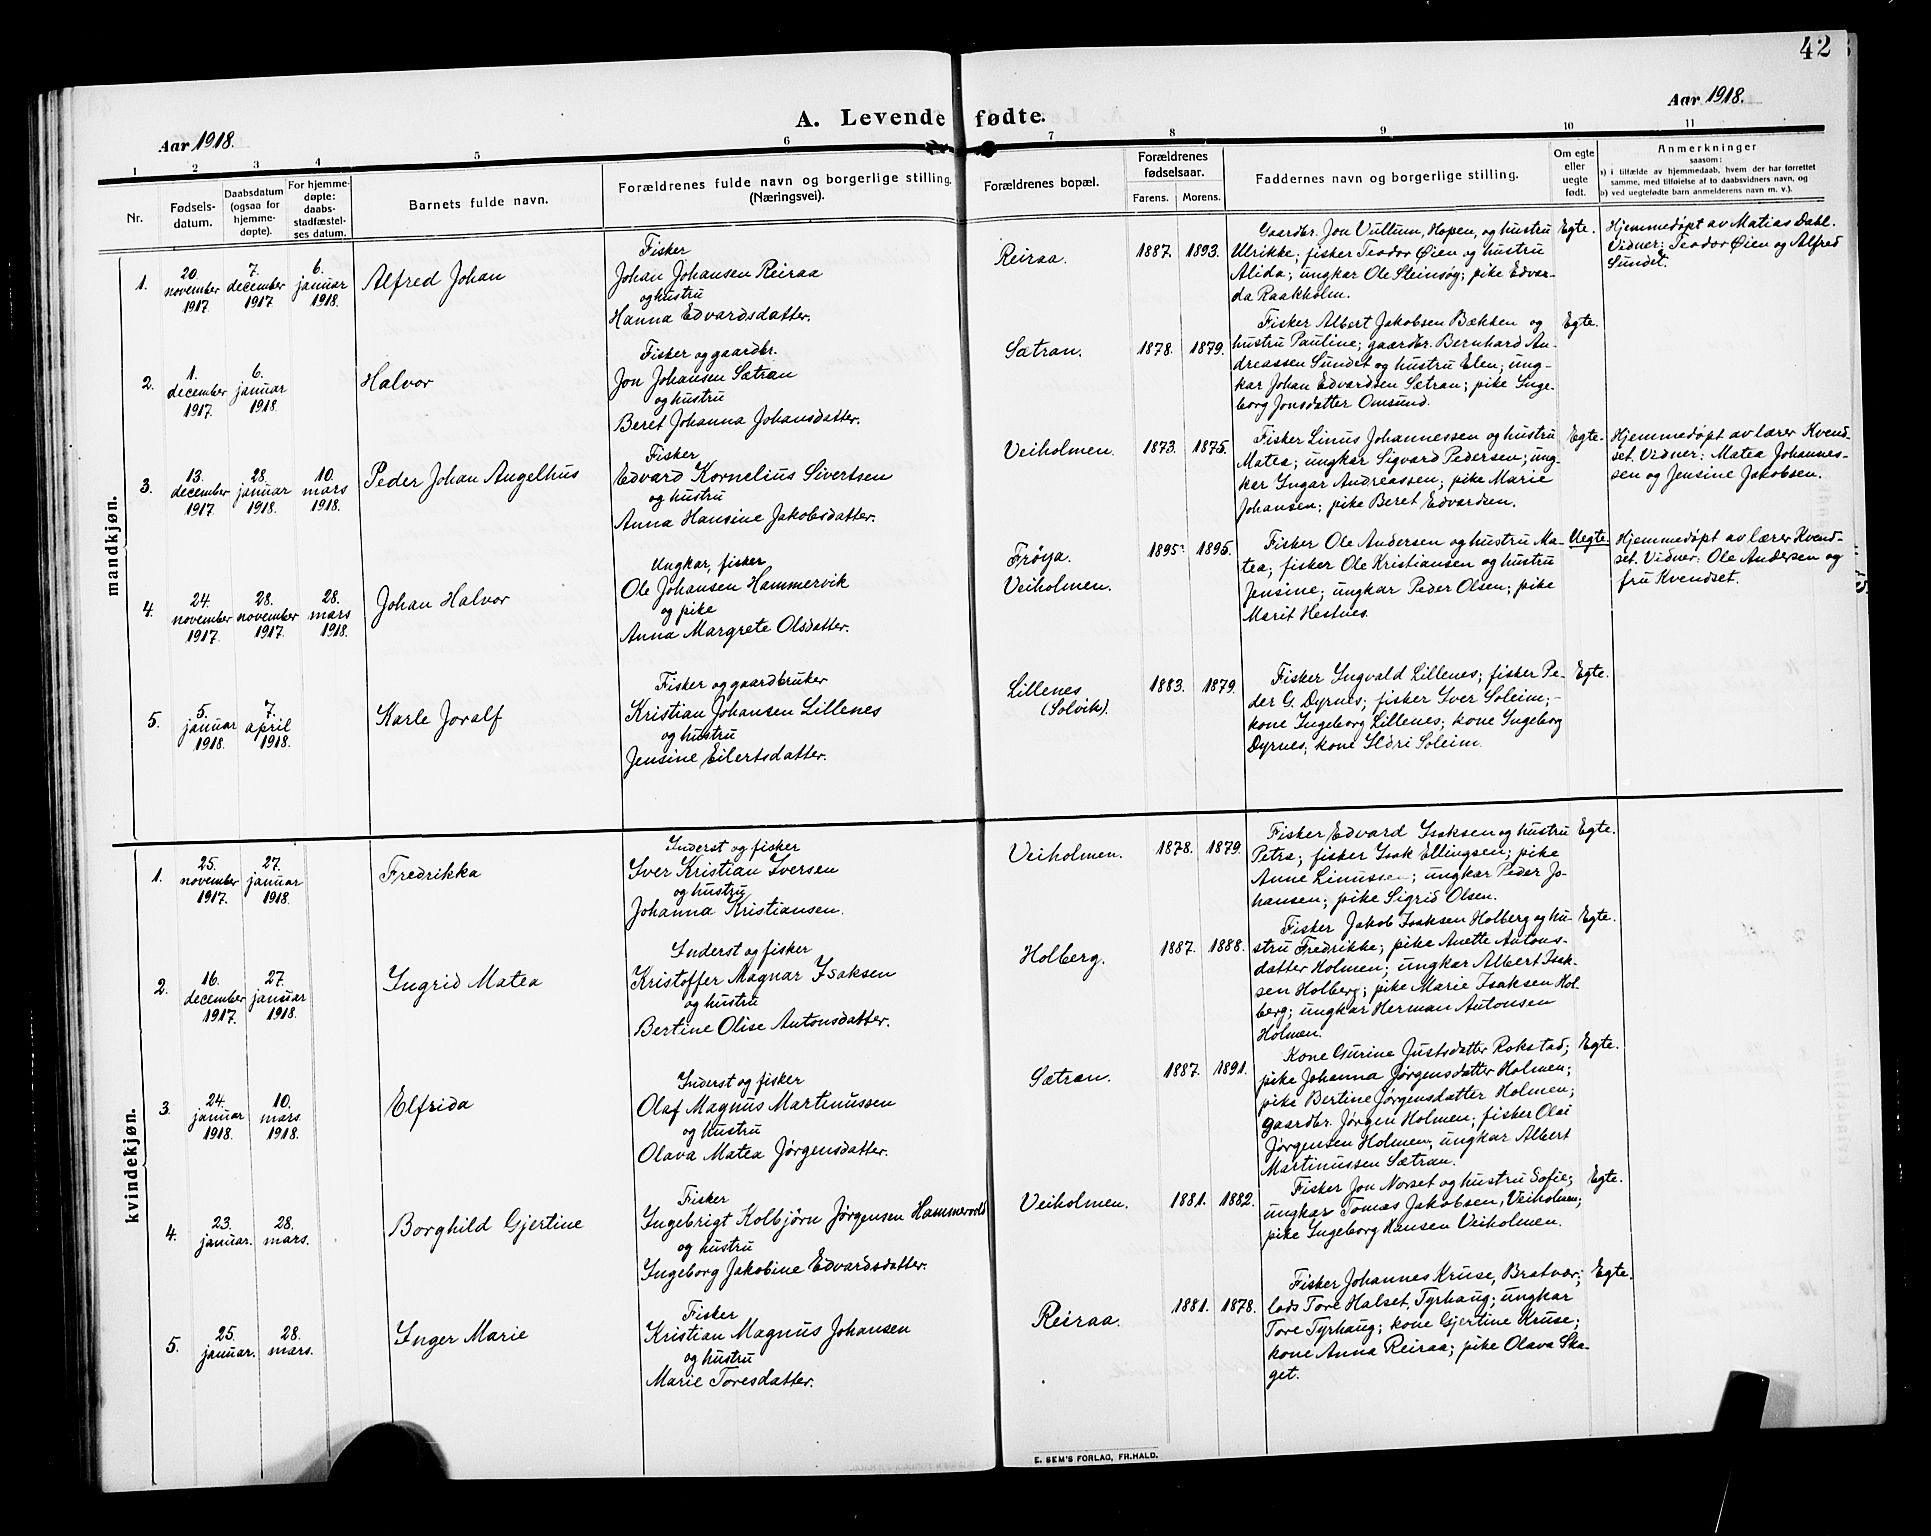 42
Aar 1918.
A. Levende fødte.
Aar 1918.
1 2 3 4 5 6 7 8 9 10 11
Nr.
Fødsels-
datum.
Daabsdatum
(ogsaa for
hjemme-
døpte).
For hjemme-
døpte:
daabs-
stadfæstel-
ses datum.
Barnets fulde navn.
Forældrenes fulde navn og borgerlige stilling.
(Næringsvei).
Forældrenes bopæl.
Forældrenes
fødselsaar.
Farens. Morens.
Faddernes navn og borgerlige stilling.
Om egte
eller
uegte
født.
Anmerkninger
saasom:
a) i tilfælde av hjemmedaab, hvem der har forrettet
samme, med tilføielse af to daabsvidners navn, og
b) ved uegtefødte barn anmelderens navn m. v.).
mandkjøn.
1.
20.
november
1917.
7.
december
1917.
6.
januar
1918.
Alfred Johan
Fisker
Johan Johansen Reiraa
og hustru
Hanna Edvardsdatter.
Reiraa.
1887. 1893.
Gaardbr. Jon Vullum, Hopen, og hustru
Ulrikke; fisker Teodor Øien og hustru
Alida; ungkar Ole Steinsøg; pike Edvar-
da Raakholm.
Egte.
Hjemmedøpt av Matias Dahl.
Vidner: Teodor Øien og Alfred
Sundet.
2.
1.
december
1917.
6.
januar
1918.
Halvor
Fisker og gaardbr.
Jon Johansen Sætran
og hustru
Beret Johanna Johansdatter.
Sætran.
1878. 1879.
Fisker Albert Jakobsen Bækken og
hustru Pauline; gaardbr. Bernhard An-
dreassen Sundet og hustru Elen; ung-
kar Johan Edvardsen Sætran; pike Inge-
borg Jonsdatter Omsund.
Egte.
3.
13.
december
1917.
28.
januar
1918.
10.
mars
1918.
Peder Johan Angelhus
Fisker
Edvard Kornelius Sivertsen
og hustru
Anna Hansine Jakobsdatter.
Veiholmen.
1873. 1875.
Fisker Linus Johannessen og hustru
Matea; ungkar Sigvard Pedersen; ung-
kar Ingar Andreassen; pike Marie
Johansen; pike Beret Edvardsen.
Egte.
Hjemmedøpt av lærer Kvend-
set. Vidner: Matea Johannes-
sen og Jensine Jakobsen.
4.
24.
november
1917.
28.
november
1917.
28.
mars
1918.
Johan Halvor
Ungkar, fisker
Ole Johansen Hammervik
og pike
Anna Margrete Olsdatter.
Frøya.
Veiholmen.
1895. 1895.
Fisker Ole Andersen og hustru Ma-
tea; fisker Ole Kristiansen og hustru
Jensine; ungkar Peder Olsen; pike
Marit Hestnes.
Uegte.
Hjemmedøpt av lærer Kvend-
set. Vidner: Ole Andersen og
fru Kvendset.
5.
5.
januar
1918.
7.
april
1918.
Karle Joralf
Fisker og gaardbruker
Kristian Johansen Lillenes
og hustru
Jensine Eilertsdatter.
Lillenes
(Solvik).
1883. 1879.
Fisker Ingvald Lillenes; fisker Pe-
der G. Dyrnes; fisker Iver Soleim;-
kone Ingeborg Lillenes; kone Ingeborg
Dyrnes; kone Ildri Soleim.
Egte.
kvindekjøn.
1.
25.
november
1917.
27.
januar
1918.
Fredrikka
Inderst og fisker
Iver Kristian Iversen
og hustru
Johanna Kristiansen.
Veiholmen.
1878. 1879.
Fisker Edvard Isaksen og hustru
Petra; fisker Isak Ellingsen; pike
Anne Linussen; ungkar Peder Jo-
hansen; pike Sigrid Olsen.
Egte.
2.
16.
december
1917.
27.
januar
1918.
Ingrid Matea
Inderst og fisker
Kristoffer Magnar Isaksen
og hustru
Bertine Olise Antonsdatter.
Holberg.
1887. 1888.
Fisker Jakob Isaksen Holberg og hu-
stru Fredrikke; pike Anette Antons-
datter Holmen; ungkar Albert Isak-
sen Holberg; pike Marie Isaksen Hol-
berg; ungkar Herman Antonsen
Holmen.
Egte.
3.
24.
januar
1918.
10.
mars.
1918.
Elfrida
Inderst og fisker
Olaf Magnus Martinussen
og hustru
Olava Matea Jørgensdatter.
Sætran.
1887. 1891.
Kone Gurine Justsdatter Rokstad;
pike Johanna Jørgensdatter Holmen;
pike Bertine Jørgensdatter Holmen;
gaardbr. Jørgen Holmen; fisker Olai
Jørgensen Holmen; ungkar Albert
Martinussen Sætran.
Egte.
4.
23.
januar.
28.
mars.
Borghild Gjertine
Fisker
Ingebrigt Kolbjörn Jørgensen Hammervold
og hustru
Ingeborg Jakobine Edvardsdatter.
Veiholmen.
1881. 1882.
Fisker Jon Norset og hustru Sofie;
ungkar Tomas Jakobsen, Veiholmen;
pike Ingeborg Hansen Veiholmen.
Egte.
5.
25.
januar.
28.
mars.
Inger Marie
Fisker
Kristian Magnus Johansen
og hustru
Marie Toresdatter.
Reiraa.
1881. 1878.
Fisker Johannes Kruse, Bratvær;
lods Tore Halset, Tyrhaug; ungkar
Tore Tyrhaug; kone Gjertine Kruse;
kone Anna Reiraa; pike Olava Ska-
get.
Egte.
E. SEM'S FORLAG, FR.HALD.